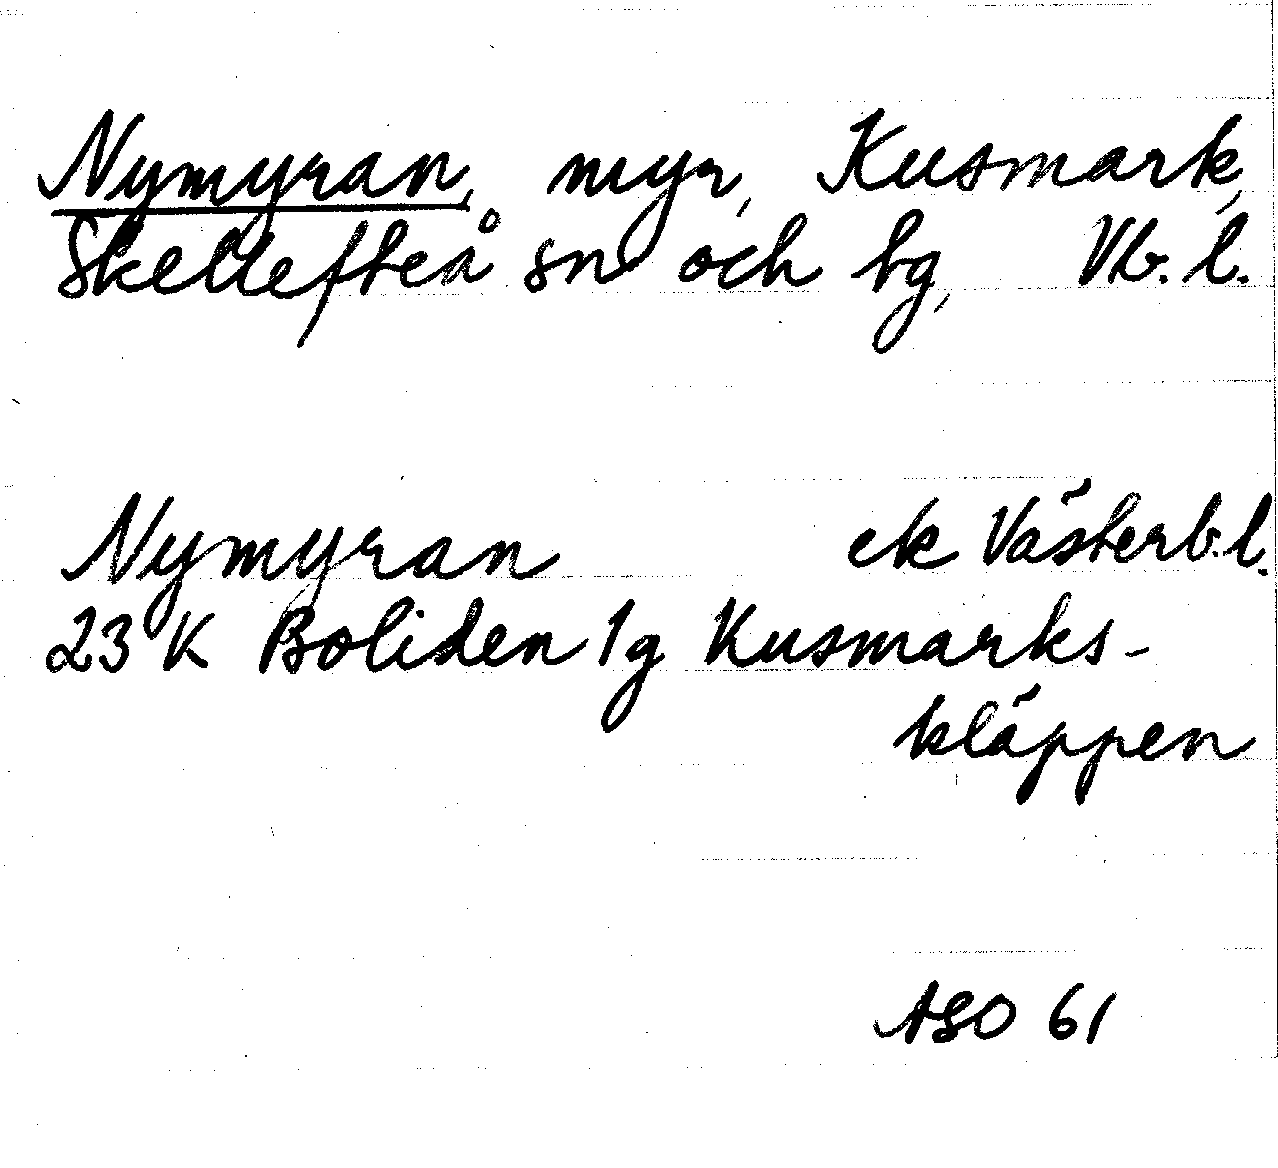 Nymyran, myr, Kusmark,
Skellefteå sn och tg, Vb. l.
Nymyran ek Västerb. l.
23 K Boliden 1g Kusmarks-
kläppen
ASO 61